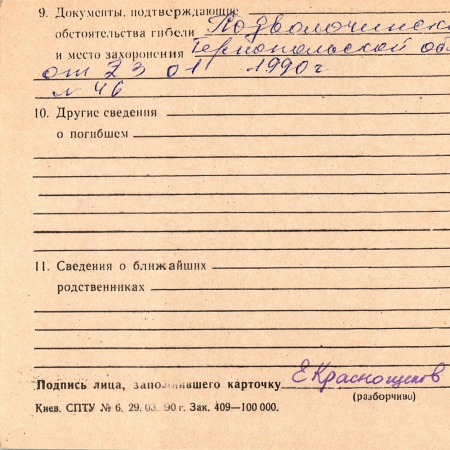 9. Документы, подтверждающие
обстоятельства гибели Подволочиск
и место захоронения Тернопольской об
от 23 01 1990г
N 46
10. Другие сведения
о погибшем
11. Сведения о ближайших
родственниках
Подпись лица, заполнившего карточку Е Краснощеков
(разборчиво)
Киев. СПТУ № 6. 29. 03. 90 г. Зак. 409—100 000.